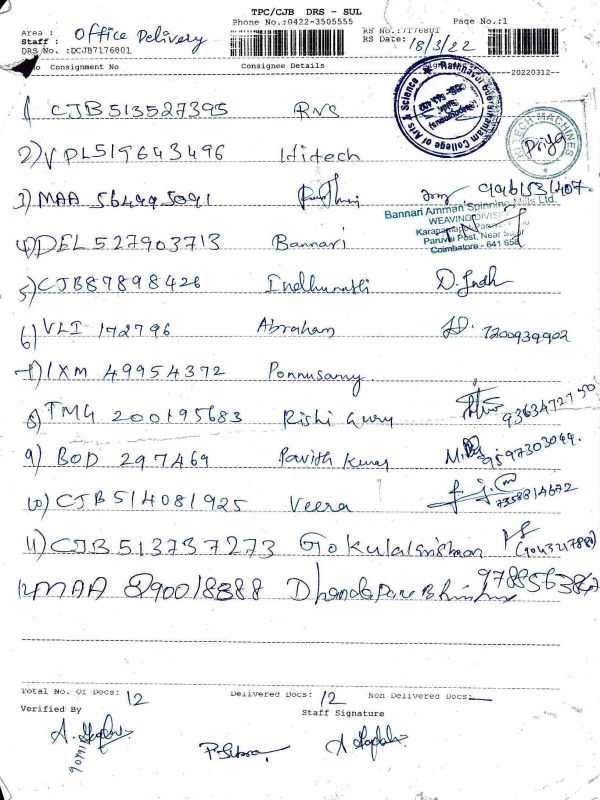 TPC/CJB DRS - SUL
Phone No.:0422-3505555 Page No.:1
Area : Office Delivery RS No.:7176801
Staff : RS Date: 18/3/22
DRS No. :DCJB7176801
No Consignment No Consignee Details
20220312--
1) CJB 513527395 RVS
2) VPL519643496 Hitech Priya
Rathnavel Subramaniam College of Arts & Science
HI TECH MACHINES
3) MAA 564995091
Bannari Amman Spinning Mills Ltd.
WEAVING DIVISION
Paruvai Post, Near Sulur
Coimbatore - 641 658
4) DEL 527903713 Bannari
5) CJB89898426 Indhumathi D. Indh
6) VLI 172796 Abraham 7200939902
7) IXM 49954372 Ponnusamy
8) TMG 200195683 Rishi Gury 9363472750
9) BOD 297469 Pavith Kumar 9597303049
10) CJB514081925 Veera 7358814672
11) CJB 513737273 Gokulakrishnan
12) MAA 890018888
Total No. Of Docs: 12 Delivered Docs: 12 Non Delivered Docs:
Verified By Staff Signature